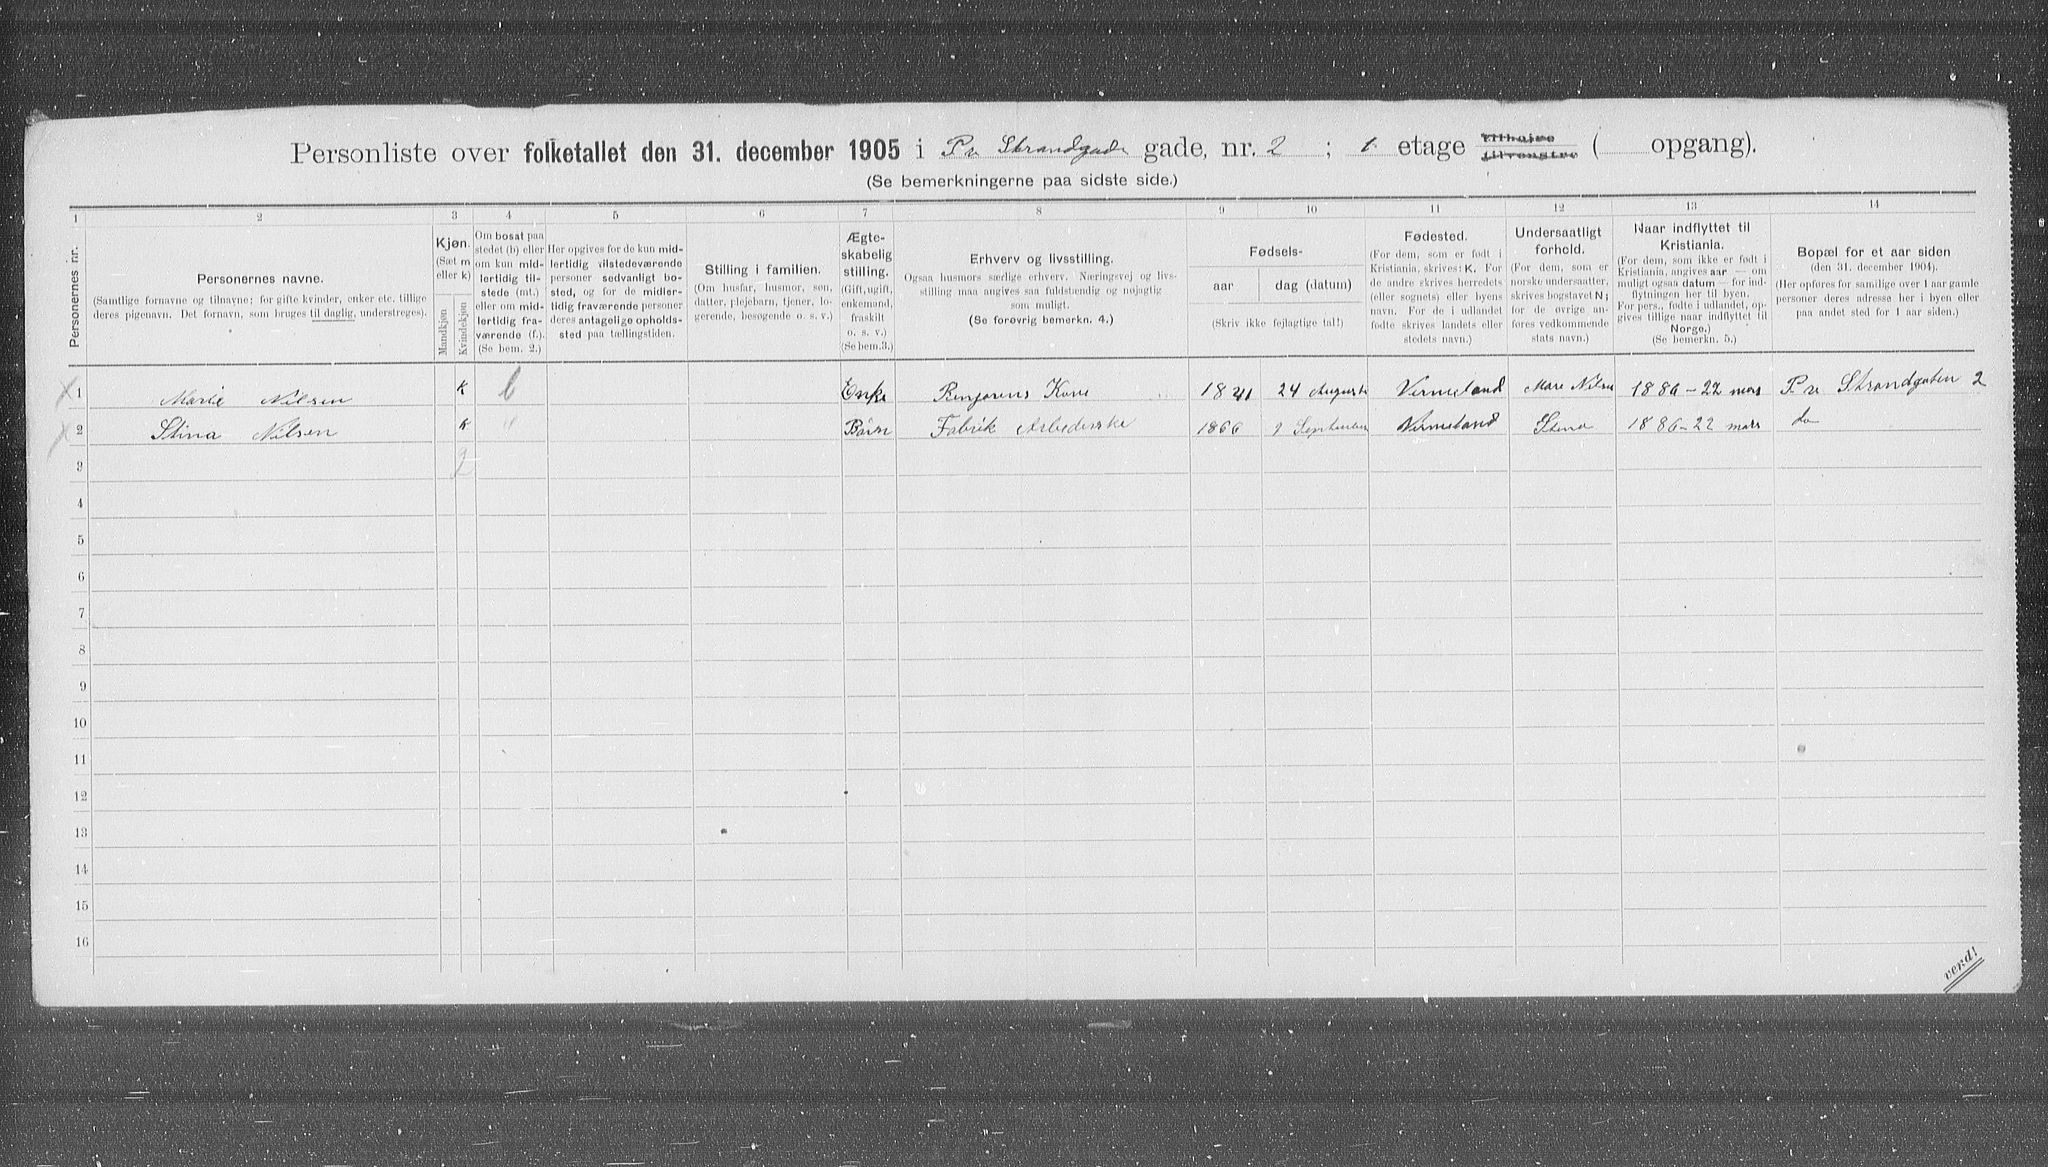 Personliste over folketallet den 31. december 1905 i Pr Strandgade gade, nr. 2 ; 1. etage tilhøire tilvenstre ( opgang).
(Se bemerkningerne paa sidste side.)
1 2 3 4 5 6 7 8 9 10 11 12 13 14
Personernes nr.
Personernes navne.
(Samtlige fornavne og tilnavne; for gifte kvinder, enker etc. tillige
deres pigenavn. Det fornavn, som bruges til daglig, understreges).
Kjøn.
(Sæt m
eller k)
Mandkjøn
Kvindekjøn
Om bosat paa
stedet (b) eller
om kun mid-
lertidig til-
stede (mt.)
eller om mid-
lertidig fra-
værende (f.).
(Se bem. 2.)
Her opgives for de kun mid-
lertidig tilstedeværende
personer sedvanligt bo-
sted, og for de midler-
tidig fraværende personer
deres antagelige opholds-
sted paa tællingstiden.
Stilling i familien.
(Om husfar, husmor, søn,
datter, plejebarn, tjener, lo-
gerende, besøgende o. s. v.)
Ægte-
skabelig
stilling.
(Gift, ugift,
enkemand,
fraskilt
o. s. v.)
(Se bem.3.)
Erhverv og livsstilling.
Ogsaa husmors særlige erhverv. Næringsvej og livs-
stilling maa angives saa fuldstændig og nøjagtig
som muligt.
(Se forøvrig bemerkn. 4.)
Fødsels-
aar
dag (datum)
(Skriv ikke fejlagtige tal!)
Fødested.
(For dem, som er født i
Kristiania, skrives: K. For
de andre skrives herredets
(eller sognets) eller byens
navn. For de i udlandet
fødte skrives landets eller
stedets navn.)
Undersaatligt
forhold.
(For dem, som er
norske undersaatter,
skrives bogstavet N;
for de øvrige an-
føres vedkommende
stats navn.)
Naar indflyttet til
Kristiania.
(For dem, som ikke er født i
Kristiania, angives aar — om
muligt ogsaa datum — for ind-
flytningen her til byen.
For pers., fødte i udlandet, op-
gives tillige naar indflyttet til
Norge.)
(Se bemerkn. 5.)
Bopæl for et aar siden
(den 31. december 1904).
(Her opføres for samtlige over 1 aar gamle
personer deres adresse her i byen eller
paa andet sted for 1 aar siden.)
1 Marie Nilsen K b Enke Rengørens Kone 1841 24 Auguste Vermeland Mare Nilsen 1886 - 22 mars Pr Strandgaten 2
2 Stina Nilsen K " Barn Fabrik Arbederske 1866 9 September Vermeland Stina 1886 - 22 mars do
3 2
4
5
6
7
8
9
10
11
12
13
14
15
16
vend!